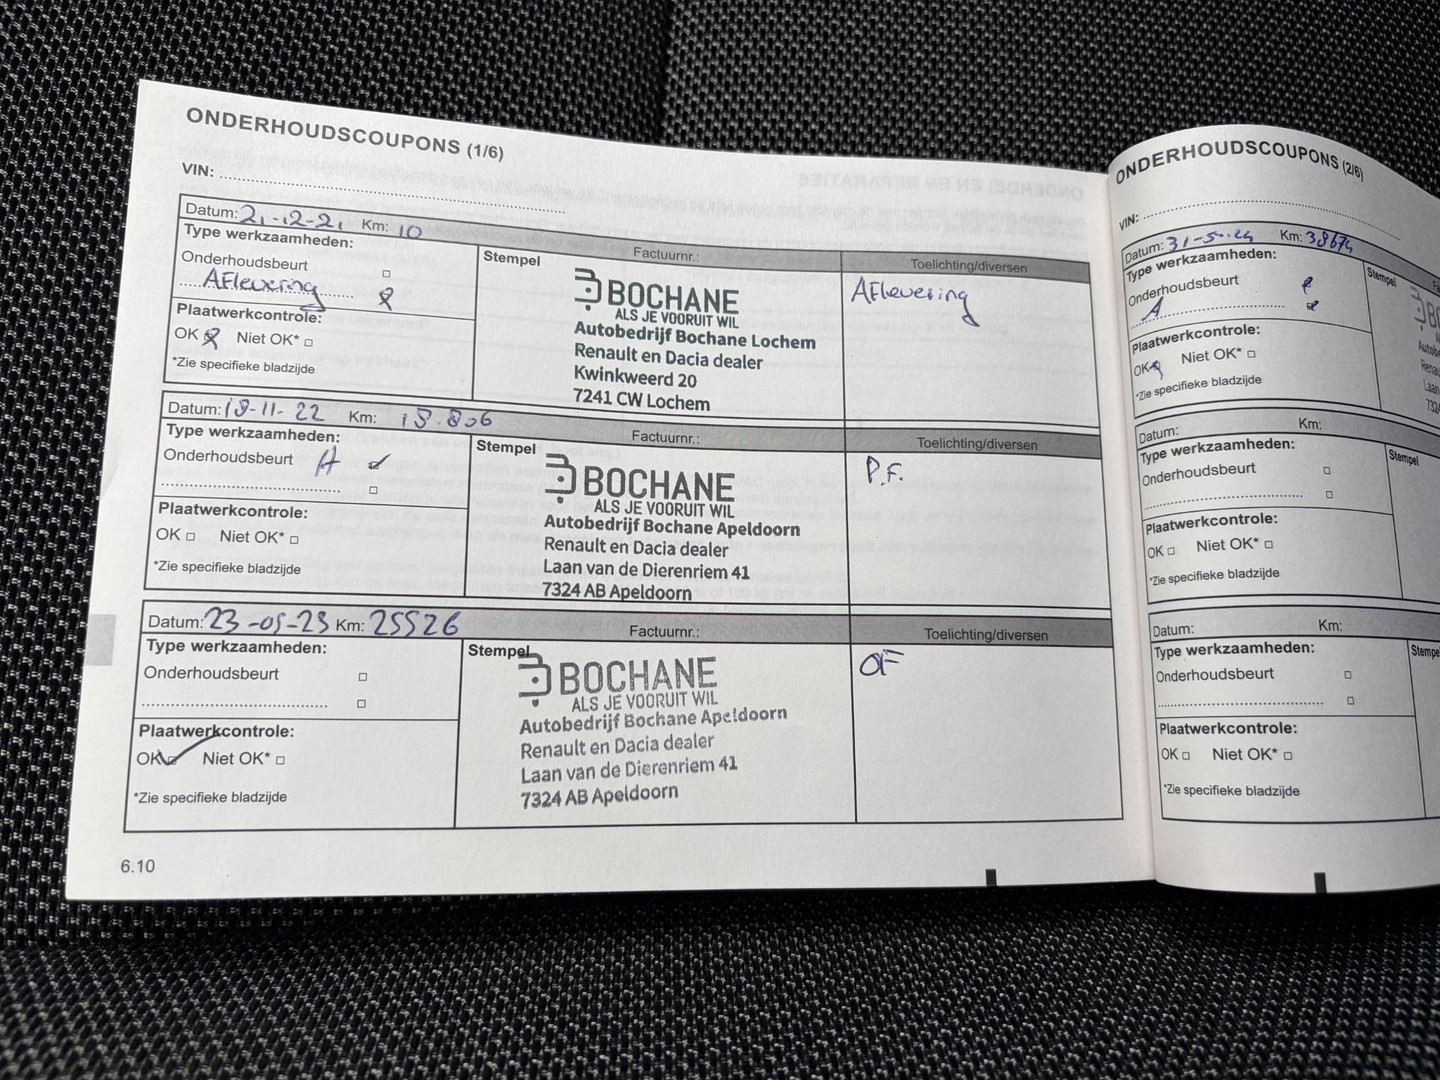 ONDERHOUDSCOUPONS (1/6)
VIN:
Datum: 21-12-21 Km: 10
Type werkzaamheden:
Onderhoudsbeurt
Aflevering
Plaatwerkcontrole:
OK Niet OK*
*Zie specifieke bladzijde
Stempel Factuurnr.:
BOCHANE
ALS JE VOORUIT WIL
Autobedrijf Bochane Lochem
Renault en Dacia dealer
Kwinkweerd 20
7241 CW Lochem
Toelichting/diversen
Aflevering
Datum: 18-11-22 Km: 18.806
Type werkzaamheden:
Onderhoudsbeurt A
Plaatwerkcontrole:
OK Niet OK*
*Zie specifieke bladzijde
Stempel Factuurnr.:
BOCHANE
ALS JE VOORUIT WIL
Autobedrijf Bochane Apeldoorn
Renault en Dacia dealer
Laan van de Dierenriem 41
7324 AB Apeldoorn
Toelichting/diversen
P.F.
Datum: 23-05-23 Km: 25526
Type werkzaamheden:
Onderhoudsbeurt
Plaatwerkcontrole:
OK Niet OK*
*Zie specifieke bladzijde
Stempel Factuurnr.:
BOCHANE
ALS JE VOORUIT WIL
Autobedrijf Bochane Apeldoorn
Renault en Dacia dealer
Laan van de Dierenriem 41
7324 AB Apeldoorn
Toelichting/diversen
OF
6.10
ONDERHOUDSCOUPONS (2/6)
VIN:
Datum: 31-5-24 Km: 38674
Type werkzaamheden:
Onderhoudsbeurt
A
Plaatwerkcontrole:
OK Niet OK*
*Zie specifieke bladzijde
Stempel
Datum: Km:
Type werkzaamheden:
Onderhoudsbeurt
Plaatwerkcontrole:
OK Niet OK*
*Zie specifieke bladzijde
Stempel
Datum: Km:
Type werkzaamheden:
Onderhoudsbeurt
Plaatwerkcontrole:
OK Niet OK*
*Zie specifieke bladzijde